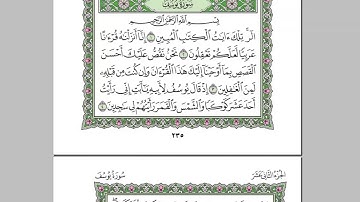 سورة يوسف
بسم الله الرحمن الرحيم
الر تلك ءايت الكتب المبين ۝ إنا أنزلنه قرءنا
عربيا لعلكم تعقلون ۝ نحن نقص عليك أحسن
القصص بما أوحينا إليك هذا القرءان وإن كنت من قبله
لمن الغفلين ۝ إذ قال يوسف لأبيه يأبت إني رأيت
أحد عشر كوكبا والشمس والقمر رأيتهم لي سجدين ۝
٢٣٥
الجزء الثاني عشر
سورة يوسف